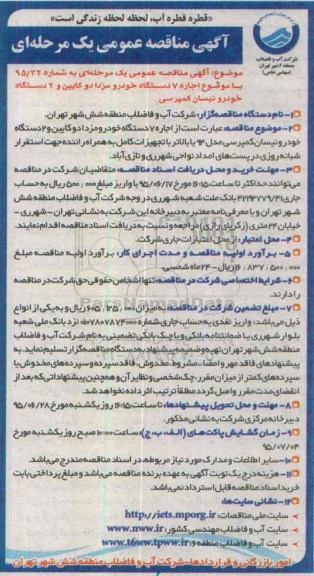 «قطره قطره آب، لحظه لحظه زندگی است»
آگهی مناقصه عمومی یک مرحله‌ای
شرکت آب و فاضلاب
منطقه ۶ شهر تهران
(سهامی خاص)
موضوع: آگهی مناقصه عمومی یک مرحله‌ای به شماره ۹۵/۲۲
با موضوع اجاره ۷ دستگاه خودرو مزدا دو کابین و ۲ دستگاه
خودرو نیسان کمپرسی
۱- نام دستگاه مناقصه‌گزار: شرکت آب و فاضلاب منطقه شش شهر تهران.
۲- موضوع مناقصه: عبارت است از اجاره ۷ دستگاه خودرو مزدا دو کابین و ۲ دستگاه
خودرو نیسان کمپرسی مدل ۹۴ یا بالاتر با تجهیزات کامل به همراه راننده جهت استقرار
شبانه روزی در پست‌های امداد نواحی شهرری و نازی آباد.
۳- مهلت خرید و محل دریافت اسناد مناقصه: متقاضیان شرکت در مناقصه
می‌توانند حداکثر تا ساعت ۱۶:۱۵ مورخ ۹۵/۰۶/۱۷ با واریز مبلغ ۵۰۰,۰۰۰ ریال به حساب
جاری ملت شعبه شهرری در وجه شرکت آب و فاضلاب منطقه شش
شهر تهران و با معرفی‌نامه معتبر به دبیرخانه این شرکت به نشانی تهران - شهرری -
خیابان ۲۴ متری (زکریای رازی) مراجعه و نسبت به دریافت اسناد مناقصه اقدام نمایند.
۴- محل اعتبار: از محل اعتبارات جاری شرکت.
۵- برآورد اولیه مناقصه و مدت اجرای کار: برآورد اولیه مناقصه مبلغ
ریال - ۲۴ ماه شمسی.
۶- شرایط اختصاصی شرکت در مناقصه: تنها اشخاص حقوقی حق شرکت در مناقصه
را دارند.
۷- مبلغ تضمین شرکت در مناقصه: به میزان ۶۰۵,۱۲۵,۰۰۰ ریال و به یکی از انواع
ذیل می‌باشد: واریز نقدی به حساب جاری شماره نزد بانک ملی شعبه
بلوار شهرری یا ضمانتنامه بانکی و یا چک بانکی تضمینی به نام شرکت آب و فاضلاب
منطقه شش شهر تهران تهیه و ضمیمه پیشنهاد به دستگاه مناقصه‌گزار تسلیم نماید. به
پیشنهادهای فاقد مهر و امضا، مشروط، مخدوش، فاقد سپرده و سپرده‌های مخدوش یا
سپرده‌های کمتر از میزان مقرر، چک شخصی و نظایر آن و همچنین پیشنهاداتی که بعد از
انقضای مدت مقرر واصل گردد مطلقا ترتیب اثر داده نخواهد شد.
۸- مهلت و محل تحویل پیشنهادها: تا ساعت ۱۶:۱۵ روز یکشنبه مورخ ۹۵/۰۶/۲۸
دبیرخانه مرکزی شرکت به نشانی مذکور.
۹- زمان گشایش پاکت‌های (الف، ب، ج): ساعت ۱۰:۰۰ صبح روز یکشنبه مورخ
۹۵/۰۷/۰۴
۱۰- سایر اطلاعات و مدارک مورد نیاز مربوطه، در اسناد مناقصه مندرج می‌باشد.
۱۱- هزینه درج یک نوبت آگهی به عهده برنده مناقصه می‌باشد و مبلغ پرداختی بابت
خرید اسناد مناقصه قابل استرداد نمی‌باشد.
۱۲- نشانی سایت‌ها:
سایت ملی مناقصات: http://iets.mporg.ir
سایت آب و فاضلاب مهندسی کشور: www.nww.ir
سایت آب و فاضلاب منطقه ۶: www.t6ww.tpww.ir
امور بازرگانی و قراردادها - شرکت آب و فاضلاب منطقه شش شهر تهران